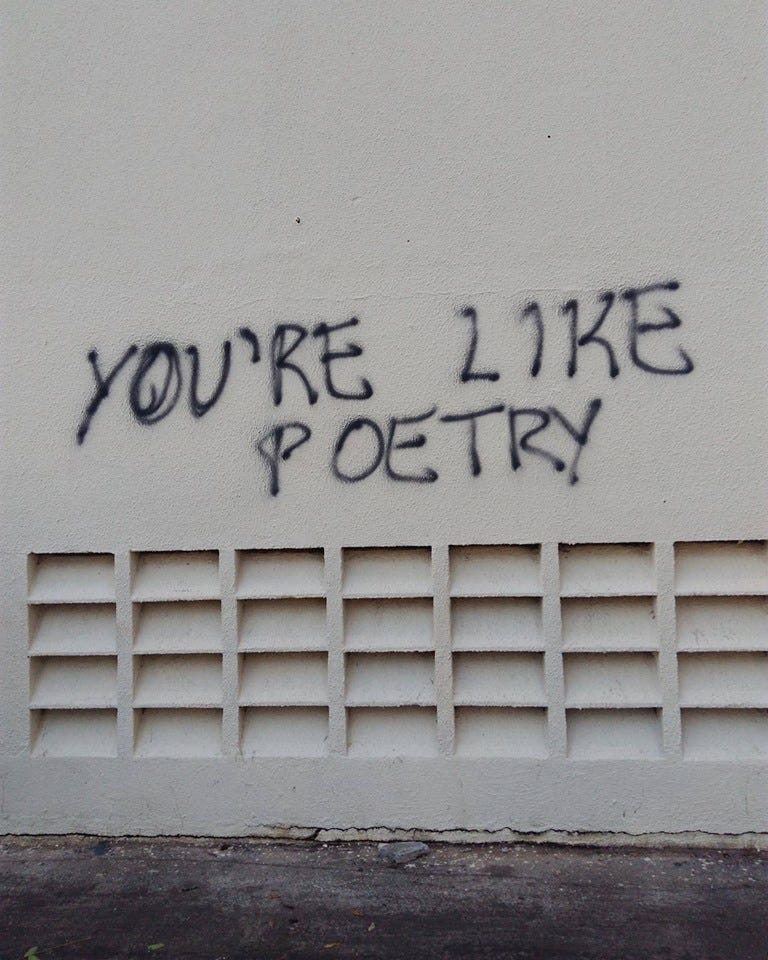 YOU'RE LIKE
POETRY